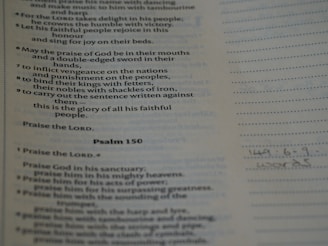 them praise his name with dancing
and make music to him with tambourine
and harp.
⁴ For the LORD takes delight in his people;
he crowns the humble with victory.
⁵ Let his faithful people rejoice in this
honour
and sing for joy on their beds.
⁶ May the praise of God be in their mouths
and a double-edged sword in their
hands,
⁷ to inflict vengeance on the nations
and punishment on the peoples,
⁸ to bind their kings with fetters,
their nobles with shackles of iron,
⁹ to carry out the sentence written against
them –
this is the glory of all his faithful
people.
Praise the LORD.
Psalm 150
¹ Praise the LORD.
Praise God in his sanctuary;
praise him in his mighty heavens.
² Praise him for his acts of power;
praise him for his surpassing greatness.
³ Praise him with the sounding of the
trumpet,
praise him with the harp and lyre,
⁴ praise him with tambourine and dancing,
praise him with the strings and pipe,
⁵ praise him with the clash of cymbals,
praise him with resounding cymbals.
149:6-9
words